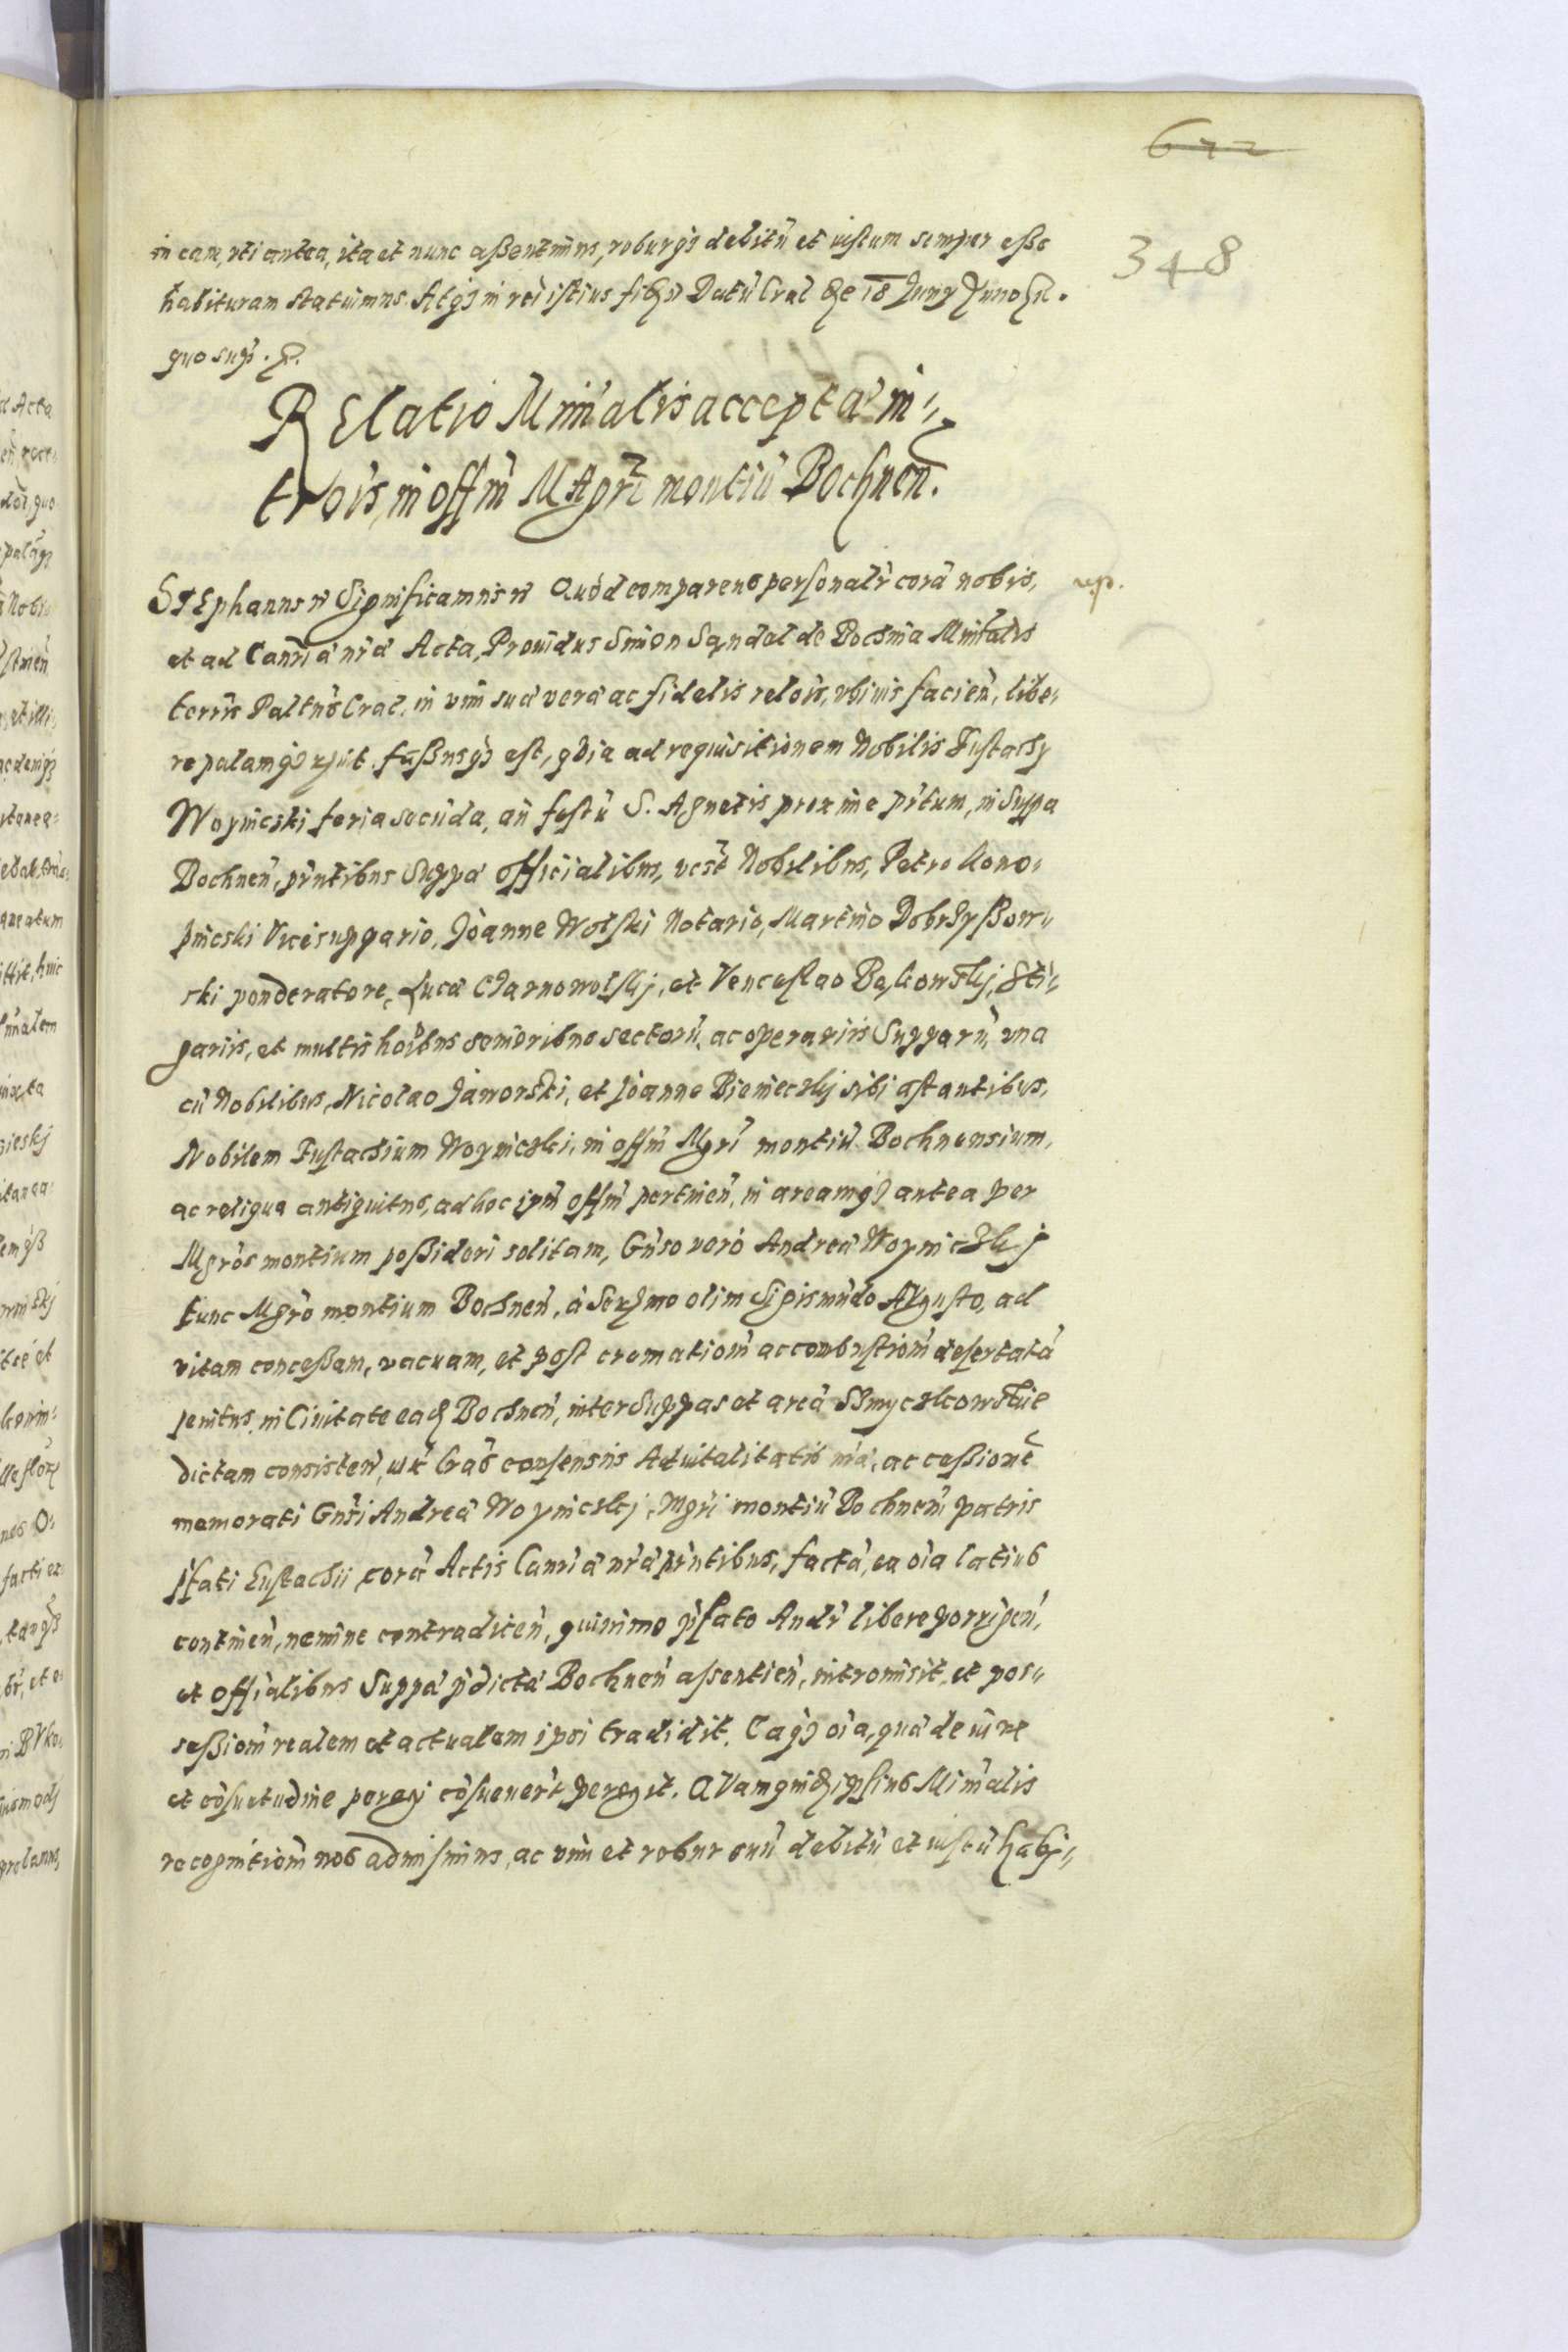 622
348
in eam, vti antea, ita et nunc aßentimus, roburq3 debitũ et iustum semper eße
habituram statuimus. Atq3 in rei istius fid Datũ Crac̃ die 18 Juny Anno
quo sup̃.
RElatio Miñalis acceptæ in„
trois, in off̃m Mag̃ri montiũ Bochnen̄.
STEphanus Significamus Quòd comparens personalr̃ corã nobis, rep.
et ad Canr̃iæ nr̃æ Acta, Prouidus Simon Sendal de Bochnia Minr̃alis
terris Palt̃nus Crac̃. in vim suæ veræ ac fidelis relõis, vbiuis facien̄, libe„
re palamq3 fußusq3 est, q̃dia ad requisitionem Nobilis Eustachy
Woynicski feria secũda, an̄ festũ S. Agnetis proxime pr̃tum, in Suppa
Bochnen̄, pr̃ntibus Suppæ officialibus, vc3t Nobilibus, Petro Kono„
pnicski Vicesuppario, Joanne Wolski Notario, Martino Dobrzyßow„
ski ponderatore, Luca Czarnowolskj, et Venceslao Bąkowskj, Sti„
garis, et multis hoĩbus senioribus sectorũ, ac operariis Supparũ, vna
cũ Nobilibus, Nicolao Jaworski, et Joanne Bieniecskj sibi astantibus,
Nobilem Eustachium Woynicski, in off̃m Mgr̃i montiũ Bochnensium,
ac reliqua antiquitus, ad hoc ipm̃ off̃m pertinen̄, in areamq3 antea per
Mgr̃os montium poßideri solitam, Gñso verò Andreæ Woynicskj
tunc Mgr̃o montium Bochnen̄, à Ser̃mo olim Sigismũdo Augusto, ad
vitam conceßam, vacuam, et post crematiom̃ ac combustiom̃ desertatã
penitus, in Ciuitate ead̃ Bochnen̄, inter Suppas et areã Szmyczkowskie
dictam consisten̄, iux̃ consensus Aduitalitatis nr̃æ, ac ceßionẽ
memorati Gñsi Andreæ Woynicskj, Mgr̃i montiũ Bochnen̄ patris
p̃fati Eustachii, corã Actis Canr̃iæ nr̃æ pr̃ntibus, factã, ea oĩa latius
continen̄, nemine contradicen̄, quinimo p̃fato Andr̃ libere porrigen̄,
et offĩalibus Suppæ p̃dictæ Bochnen̄ assentien̄, intromisit, et pos„
seßiom̃ realem et actualem ipsi tradidit. Eaq3 oĩa, quæ de iure
et cõsuetudine peragi cõsueuer̃t, peregit. QVamquid ipsius Minr̃alis
recognitiom̃ nos admisimus, ac vim et robur suũ debitũ et iustũ habi„